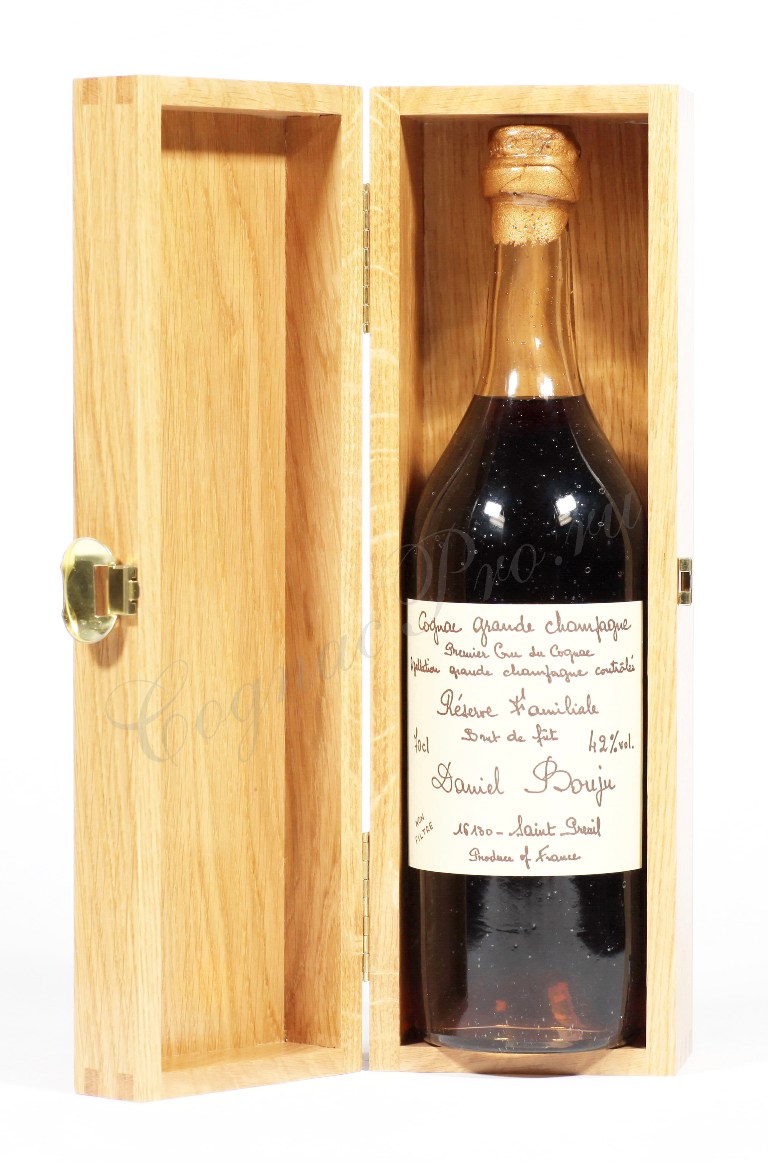 Cognac grande champagne
Premier Cru du Cognac
Appellation grande champagne contrôlée
Réserve Familiale
Brut de fût
70cl 42% vol.
Daniel Bouju
NON
FILTRE
16130 - Saint Preuil
Produce of France
CognacPro.ru